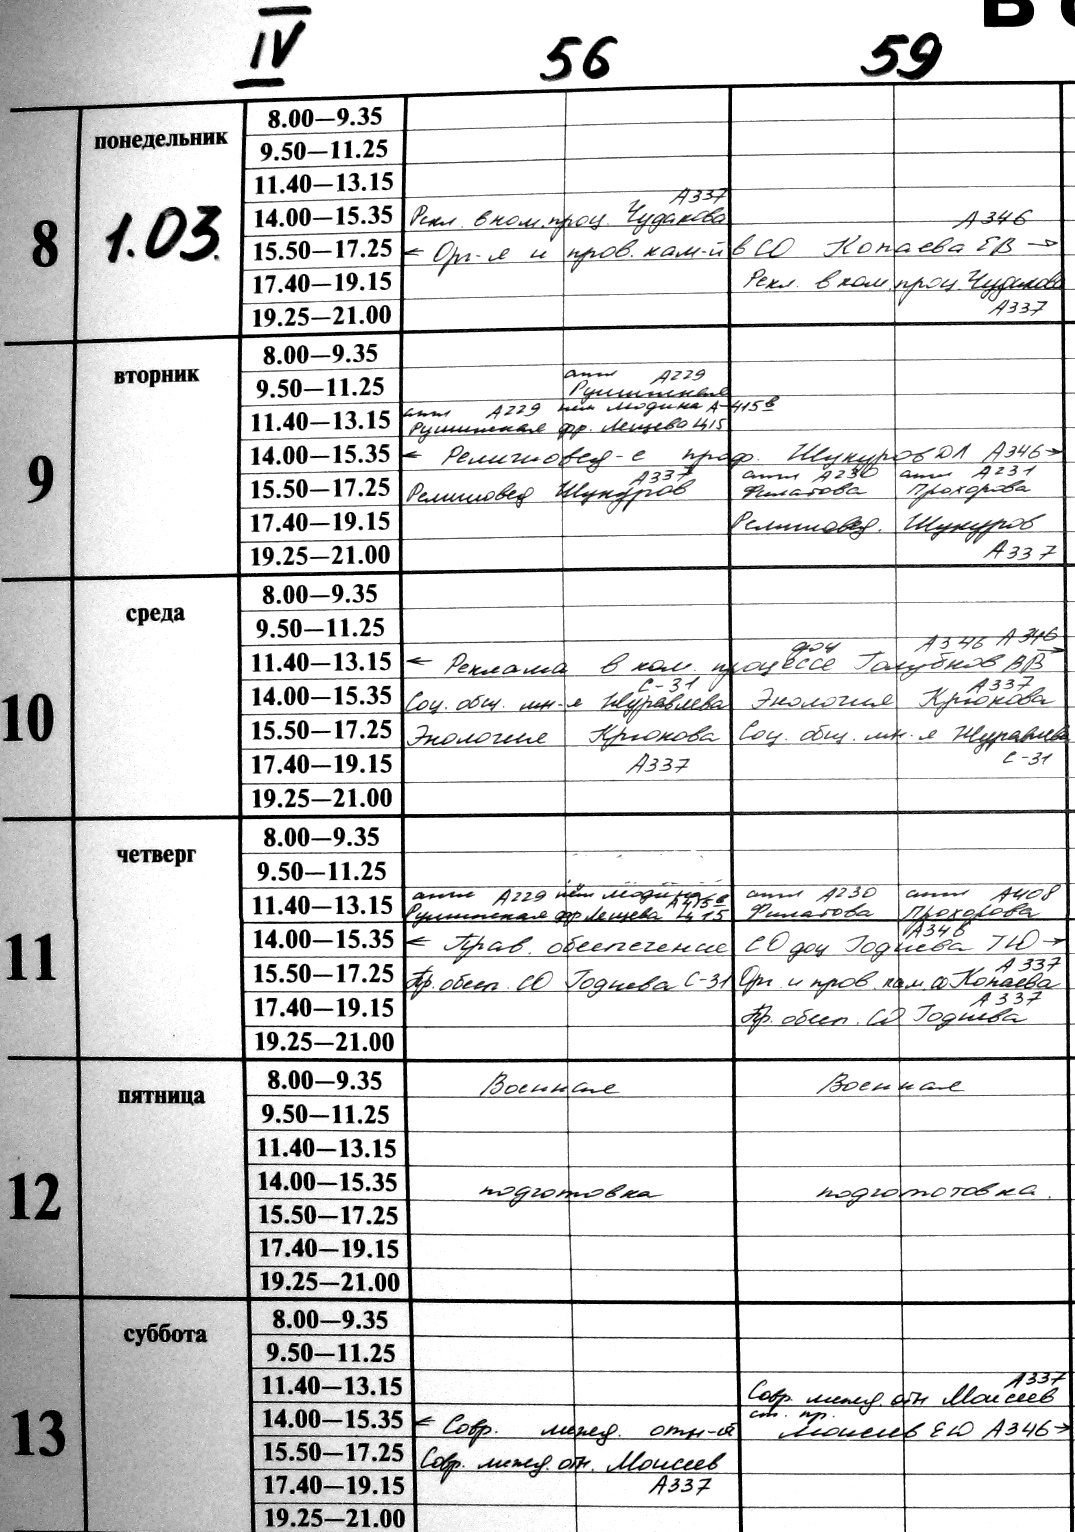 IV 56 59
8 понедельник 1.03.
8.00—9.35
9.50—11.25
11.40—13.15
А337
14.00—15.35 Рекл. в ком. проц. Чудакова
А346
15.50—17.25 ← Орг-я и пров. кам-й в СО Копаева ЕВ →
17.40—19.15 Рекл. в ком. проц. Чудакова
19.25—21.00 А337
9 вторник
8.00—9.35
англ А229
9.50—11.25 Румшинская
англ А229 нем Модина А-415в
11.40—13.15 Румшинская фр. Лещева Ц15
14.00—15.35 ← Религиовед-е проф. Шукуров ДЛ А346 →
А337 англ А230 англ А231
15.50—17.25 Религиовед Шукуров Филатова Прохорова
17.40—19.15 Религиовед. Шукуров
19.25—21.00 А337
10 среда
8.00—9.35
9.50—11.25
доц А346 А346
11.40—13.15 ← Реклама в ком. процессе Голубнов ВВ →
С-31 А337
14.00—15.35 Соц. общ. мн-я Журавлева Экология Крюкова
15.50—17.25 Экология Крюкова Соц. общ. мн-я Журавлева
17.40—19.15 А337 С-31
19.25—21.00
11 четверг
8.00—9.35
9.50—11.25
англ А229 нем Модина А415в англ А230 англ А408
11.40—13.15 Румшинская фр Лещева Ц15 Филатова Прохорова
А346
14.00—15.35 ← Прав. обеспечение СО доц Годнева ТЮ →
А337
15.50—17.25 Пр. обесп. СО Годнева С-31 Орг. и пров. кам. СО Копаева
А337
17.40—19.15 Пр. обесп. СО Годнева
19.25—21.00
12 пятница
8.00—9.35 Военная Военная
9.50—11.25
11.40—13.15
14.00—15.35 подготовка подгототовка.
15.50—17.25
17.40—19.15
19.25—21.00
13 суббота
8.00—9.35
9.50—11.25
А337
11.40—13.15 Совр. межд. отн Моисеев
ст. пр.
14.00—15.35 ← Совр. межд. отн-я Моисеев ЕЮ А346 →
15.50—17.25 Совр. межд. отн. Моисеев
17.40—19.15 А337
19.25—21.00